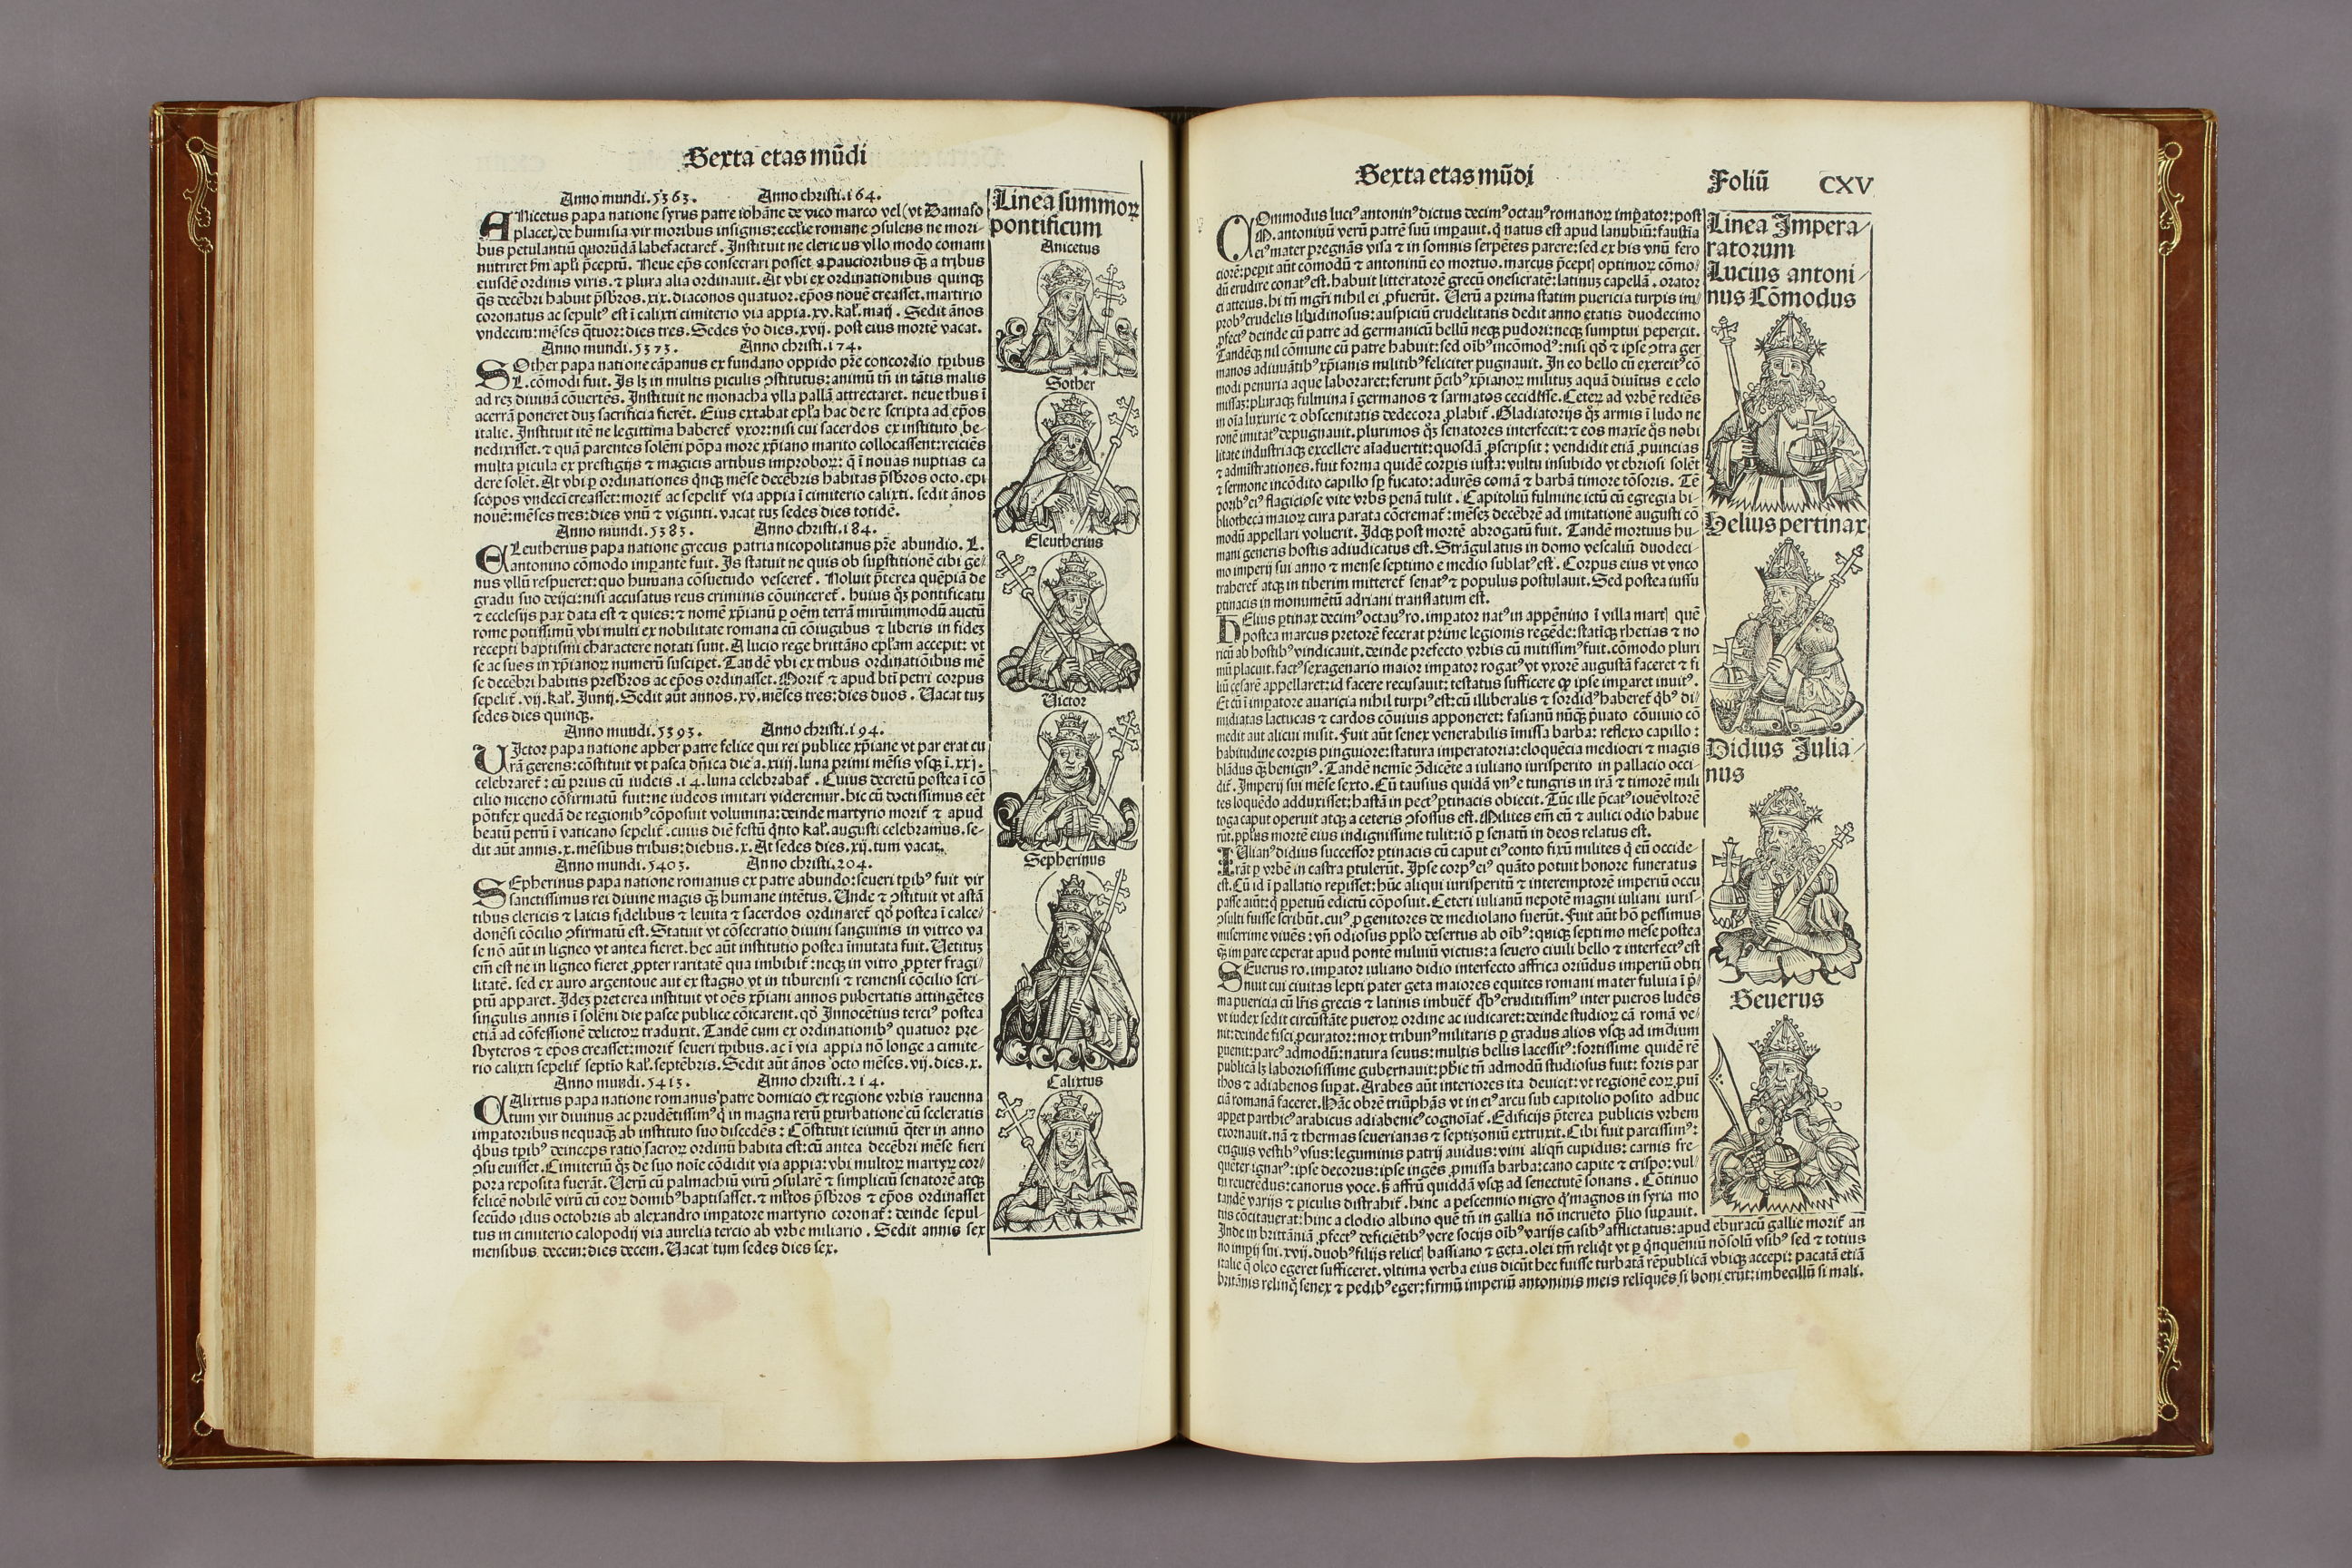 Sexta etas mũdi
Anno mundi.5363. Anno christi.164.
ANicetus papa natione syrus patre iohãne de vico marco vel (vt Damaso
placet) de humisia vir moribus insignis: ecclie romane ꝯsulens ne mori-
bus petulantiũ quorũdã labefactaret᷑. Instituit ne clericus vllo modo comam
nutriret ẜm apl'i p̃ceptũ. Neue ep̃s consecrari posset a paucioribus q̃ꝫ a tribus
eiusdẽ ordinis viris. ⁊ plura alia ordinauit. At vbi ex ordinationibus quinqꝫ
q̃s decẽbri habuit p̃sb̃ros .xix. diaconos quatuor. ep̃os nouẽ creasset. martirio
coronatus ac sepultꝰ est ĩ calixti cimiterio via appia .xv. kal'. maij. Sedit ãnos
vndecim: mẽses q̃tuor: dies tres. Sedes v̊o dies .xvij. post eius mortẽ vacat.
Anno mundi.5373. Anno christi.174.
SOther papa natione cãpanus ex fundano oppido pr̃e concordio tp̃ibus
L. cõmodi fuit. Is lꝫ in multis piculis ꝯstitutus: animũ tñ in tãtis malis
ad reꝫ diuinã cõuertẽs. Instituit ne monacha vlla pallã attrectaret. neue thus ĩ
acerrã poneret duꝫ sacrificia fierẽt. Eius extabat epl'a hac de re scripta ad ep̃os
italie. Instituit itẽ ne legittima haberet᷑ vxor: nisi cui sacerdos ex instituto be-
nedixisset. ⁊ quã parentes solẽni põpa more xp̃iano marito collocassent: reiciẽs
multa picula ex prestigijs ⁊ magicis artibus improboꝝ: q̃ ĩ nouas nuptias ca
dere solẽt. At vbi ꝑ ordinationes q̃nqꝫ mẽse decẽbris habitas p̃sb̃ros octo. epi
scopos vndeci creasset: morit᷑ ac sepelit᷑ via appia ĩ cimiterio calixti. sedit ãnos
nouẽ: mẽses tres: dies vnũ ⁊ viginti. vacat tuꝫ sedes dies totidẽ.
Anno mundi.5383. Anno christi.184.
ELeutherius papa natione grecus patria nicopolitanus pr̃e abundio. L.
antonino cõmodo impante fuit. Is statuit ne quis ob supstitionẽ cibi ge/
nus vllũ respueret: quo humana cõsuetudo vesceret᷑. Noluit p̃terea quẽpiã de
gradu suo deijci: nisi accusatus reus criminis cõuinceret᷑. Huius q̃ꝫ pontificatu
⁊ ecclesijs pax data est ⁊ quies: ⁊ nomẽ xp̃ianũ ꝑ oẽm terrã mirũimmodũ auctũ
rome potissimũ vbi multi ex nobilitate romana cũ cõiugibus ⁊ liberis in fideꝫ
recepti baptismi charactere notati sunt. A lucio rege brittãno epl'am accepit: vt
se ac sues in xp̃ianoꝝ numerũ susciꝑet. Tandẽ vbi ex tribus ordinatiõibus mẽ
se decẽbri habitis presb̃ros ac ep̃os ordinasset. Morit᷑ ⁊ apud bt̃i petri corpus
sepelit᷑ .vij. kal'. Junij. Sedit aũt annos .xv. mẽses tres: dies duos. Vacat tuꝫ
sedes dies quinqꝫ.
Anno mundi.5393. Anno christi.194.
VIctor papa natione apher patre felice qui rei publice xp̃iane vt par erat cu
rã gerens: cõstituit vt pasca dñica die a .xiiij. luna primi mẽsis vsqꝫ ĩ .xxj.
celebraret᷑: cũ prius cũ iudeis .14. luna celebrabat᷑. Cuius decretũ postea ĩ cõ
cilio niceno cõfirmatũ fuit: ne iudeos imitari videremur. hic cũ doctissimus eẽt
põtifex quedã de regionibꝰ cõposuit volumina: deinde martyrio morit᷑ ⁊ apud
beatũ petrũ ĩ vaticano sepelit᷑. cuius diẽ festũ q̃nto kal'. augusti celebramus. se-
dit aũt annis .x. mẽsibus tribus: diebus .x. At sedes dies .xij. tum vacat.
Anno mundi.5403. Anno christi.204.
SEpherinus papa natione romanus ex patre abundo: seueri tp̃ibꝰ fuit vir
sanctissimus rei diuine magis q̃ꝫ humane intẽtus. Unde ⁊ ꝯstituit vt astã
tibus clericis ⁊ laicis fidelibus ⁊ leuita ⁊ sacerdos ordinaret᷑ qd' postea ĩ calce/
donẽsi cõcilio ꝯfirmatũ est. Statuit vt cõsecratio diuini sanguinis in vitreo va
se nõ aũt in ligneo vt antea fieret. hec aũt institutio postea ĩmutata fuit. Uetituꝫ
em̃ est ne in ligneo fieret ꝓpter raritatẽ qua imbibit᷑: neqꝫ in vitro ꝓpter fragi/
litatẽ. sed ex auro argentoue aut ex stagno vt in tiburensi ⁊ remensi cõcilio scri-
ptũ apparet. Ideꝫ preterea instituit vt oẽs xp̃iani annos pubertatis attingẽtes
singulis annis ĩ solẽni die pasce publice cõicarent. qd' Innocẽtius terciꝰ postea
etiã ad cõfessionẽ delictoꝝ traduxit. Tandẽ cum ex ordinationibꝰ quatuor pre-
sbyteros ⁊ ep̃os creasset: morit᷑ seueri tp̃ibus. ac ĩ via appia nõ longe a cimite-
rio calixti sepelit᷑ septĩo kal'. septẽbris. Sedit aũt ãnos octo mẽses .vij. dies .x.
Anno mundi.5413. Anno christi.214.
CAlixtus papa natione romanus patre domicio ex regione vrbis rauenna
tum vir diuinus ac prudẽtissimꝰ q̃ in magna rerũ ꝑturbatione cũ sceleratis
imꝑatoribus nequaq̃ꝫ ab instituto suo discedẽs: Cõstituit ieiuniũ q̃ter in anno
q̃bus tp̃ibꝰ deinceps ratio sacroꝝ ordinũ habita est: cũ antea decẽbri mẽse fieri
ꝯsueuisset. Cimiteriũ q̃ꝫ de suo noĩe cõdidit via appia: vbi multoꝝ martyꝝ cor/
pora reposita fuerãt. Verũ cũ palmachiũ virũ ꝯsularẽ ⁊ simpliciũ senatorẽ atqꝫ
felicẽ nobilẽ virũ cũ eoꝝ domibꝰ baptisasset. ⁊ ml'tos p̃sb̃ros ⁊ ep̃os ordinasset
secũdo idus octobris ab alexandro imꝑatore martyrio coronat᷑: deinde sepul-
tus in cimiterio calopodij via aurelia tercio ab vrbe miliario. Sedit annis sex
mensibus decem: dies decem. Vacat tum sedes dies sex.
Linea summoꝝ
pontificum
Anicetus
Sother
Eleutherius
Victor
Sepherinus
Calixtus
Sexta etas mũdi Foliũ CXV
COmmodus luciꝰ antoninꝰ dictus decimꝰ octauꝰ romanoꝝ imꝑator: post
M. antoninũ verũ patrẽ suũ imꝑauit. q̃ natus est apud lanubiũ: faustĩa
eiꝰ mater pregnãs visa ⁊ in somnis serpẽtes parere: sed ex his vnũ fero
ciorẽ: peperit aũt cõmodũ ⁊ antoninũ eo mortuo. marcus p̃cepĩ optimoꝝ cõmo/
dũ erudire conatꝰ est. habuit litteratorẽ grecũ onesicratẽ: latinus capellã. orator
ei atteius. hi tñ mg̃ri nihil ei ꝓfuerũt. Uerũ a prima statim puericia turpis im/
probꝰ crudelis libidinosus: auspiciũ crudelitatis dedit anno etatis duodecimo
ꝓfectꝰ deinde cũ patre ad germanicũ bellũ neqꝫ pudori: neqꝫ sumptui pepercit.
Tandẽqꝫ nil cõmune cũ patre habuit: sed oĩbꝰ incõmodꝰ: nisi qd' ⁊ ipse ꝯtra ger
manos adiuuãtibꝰ xp̃ianis militibꝰ feliciter pugnauit. In eo bello cũ exercitꝰ cõ
modi penuria aque laboraret: ferunt p̃cibꝰ xp̃ianoꝝ militus aquã diuinitus e celo
missaꝫ: pluraqꝫ fulmina ĩ germanos ⁊ sarmatos cecidisse. Ceteꝝ ad vrbẽ rediẽs
in oĩa luxurie ⁊ obscenitatis dedecora ꝓlabit᷑. Gladiatorijs q̃ꝫ armis ĩ ludo ne
ronẽ imitatꝰ depugnauit. plurimos q̃ꝫ senatores interfecit: ⁊ eos maxĩe q̃s nobi
litate industriaqꝫ excellere aĩaduertit: quosdã ꝓscripsit: vendidit etiã ꝓuincias
⁊ admĩstrationes. fuit forma quidẽ corpis iusta: vultu insubido vt ebriosi solẽt
⁊ sermone incõdito capillo sꝑ fucato: adurẽs comã ⁊ barbã timore tõsoris. Tẽ
poribꝰ eiꝰ flagiciose vite vrbs penã tulit. Capitoliũ fulmine ictũ cũ egregia bi-
bliotheca maioꝝ cura parata cõcremat᷑: mẽseꝫ decẽbrẽ ad imitationẽ augusti cõ
modũ appellari voluerit. Idqꝫ post mortẽ abrogatũ fuit. Tandẽ mortuus hu-
mani generis hostis adiudicatus est. Strãgulatus in domo vescaliũ duodeci-
mo imperij sui anno ⁊ mense septimo e medio sublatꝰ est. Corpus eius vt vnco
traheret᷑ atqꝫ in tiberim mitteret᷑ senatꝰ ⁊ populus postulauit. Sed postea iussu
ꝑtinacis in monumẽtũ adriani translatum est.
HElius ꝑtinax decimꝰ octauꝰ ro. imꝑator natꝰ in appẽnino ĩ villa martĩ quẽ
postea marcus pretorẽ fecerat prime legionis regẽde: statiqꝫ rhetias ⁊ no
ricũ ab hostibꝰ vindicauit. deinde prefecto vrbis cũ mitissimꝰ fuit. cõmodo pluri
mũ placuit. factꝰ sexagenario maior imꝑator rogatꝰ vt vxorẽ augustã faceret ⁊ fi
liũ cesarẽ appellaret: id facere recusauit: testatus sufficere ꝙ ipse imꝑaret inuitꝰ.
Et cũ ĩ imꝑatore auaricia nihil turpiꝰ est: cũ illiberalis ⁊ sordidꝰ haberet᷑ q̃bꝰ di-
midiatas lactucas ⁊ cardos cõuiuis apponeret: fasianũ nũq̃ꝫ p̃uato cõuiuio cõ
medit aut alicui misit. Fuit aũt senex venerabilis ĩmissa barba: reflexo capillo:
habitudine corpis pinguiore: statura imperatoria: eloquẽcia mediocri ⁊ magis
blãdus q̃ꝫ benignꝰ. Tandẽ nemĩe ꝯ̃dicẽte a iuliano iurisperito in pallacio occi
dit᷑. Imperij sui mẽse sexto. Cũ tausius quidã vnꝰ e tungris in irã ⁊ timorẽ mili
tes loquẽdo adduxisset: hastã in pectꝰ ꝑtinacis obiecit. Tũc ille p̃catꝰ iouẽ vltorẽ
toga caput operuit atqꝫ a ceteris ꝯfossus est. Milites em̃ eũ ⁊ aulici odio habue
rũt. pp̃lus mortẽ eius indignissime tulit: iõ ꝑ senatũ in deos relatus est.
IUlianꝰ didius successor ꝑtinacis cũ caput eiꝰ conto fixũ milites q̃ eũ occide-
rãt ꝑ vrbẽ in castra ꝑtulerũt. Ipse corpꝰ eiꝰ quãto potuit honore funeratus
est. Cũ id ĩ pallatio reꝑisset: hũc aliqui iurisperitũ ⁊ interemptorẽ imperiũ occu
passe aiũt: q̃ ꝑpetuũ edictũ cõposuit. Ceteri iulianũ nepotẽ magni iuliani iuris-
ꝯsulti fuisse scribũt. cuiꝰ ꝓgenitores de mediolano fuerũt. Fuit aũt hõ pessimus
miserrime viuẽs: vñ odiosus pp̃lo desertus ab oĩbꝰ: quiqꝫ septimo mẽse postea
q̃ꝫ imꝑare ceperat apud pontẽ miluiũ victus: a seuero ciuili bello ⁊ interfectꝰ est
SEuerus ro. imꝑator iuliano didio interfecto affrica oriũdus imperiũ obti
nuit cui ciuitas lepti pater geta maiores equites romani mater fuluia ĩ p̃/
ma puericia cũ lr̃is grecis ⁊ latinis imbuet᷑ q̃bꝰ eruditissimꝰ inter pueros ludẽs
vt iudex sedit circũstãte pueroꝝ ordine ac iudicaret: deinde studioꝝ cã romã ve/
nit: deinde fisci ꝓcurator: mox tribunꝰ militaris ꝑ gradus alios vsqꝫ ad imꝑium
ꝑuenit: parcꝰ admodũ: natura seuus: multis bellis lacessitꝰ: fortissime quidẽ rẽ
publicã lꝫ laboriosissime gubernauit: ph̃ie tñ admodũ studiosus fuit: foris par
thos ⁊ adiabenos supat. Arabes aũt interiores ita deuicit: vt regionẽ eoꝝ ꝓuĩ
ciã romanã faceret. Hãc obrẽ triũphãs vt in eiꝰ arcu sub capitolio posito adhuc
appet parthicꝰ arabicus adiabenicꝰ cognoĩat᷑. Edificijs p̃terea publicis vrbem
exornauit. nã ⁊ thermas seuerianas ⁊ septizoniũ extruxit. Cibi fuit parcissimꝰ:
exiguis vestibꝰ vsus: leguminis patrij auidus: vini aliqñ cupidus: carnis fre-
quẽter ignarꝰ: ipse decorus: ipse ingẽs ꝓmissa barba: cano capite ⁊ crispo: vul-
tu reuerẽdus: canorus voce. ẜ affrũ quiddã vsqꝫ ad senectutẽ sonans. Cõtinuo
tandẽ varijs ⁊ piculis distrahit᷑. hinc a pescennio nigro q̃ magnos in syria mo
tus cõcitauerat: hinc a clodio albino quẽ tñ in gallia nõ incruẽto p̃lio supauit.
Inde in brittãniã ꝓfectꝰ deficiẽtibꝰ vere socijs oĩbꝰ varijs casibꝰ afflictatus: apud eburacũ gallie morit᷑ an
no impij sui .xvij. duobꝰ filijs relictĩ bassiano ⁊ geta. olei tm̃ reliq̃t vt ꝑ q̃nquẽniũ nõ solũ vsibꝰ sed ⁊ totius
italie q̃ oleo egeret sufficeret. vltima verba eius dicũt hec fuisse turbatã rẽpublicã vbiqꝫ accepi: pacatã etiã
britãnis relinq̃ senex ⁊ pedibꝰ eger: firmũ imperiũ antoninis meis relĩquẽs si boni erũt: imbecillũ si mali.
Linea Impera/
ratorum
Lucius antoni/
nus Cõmodus
Helius pertinax
Didius Julia/
nus
Seuerus